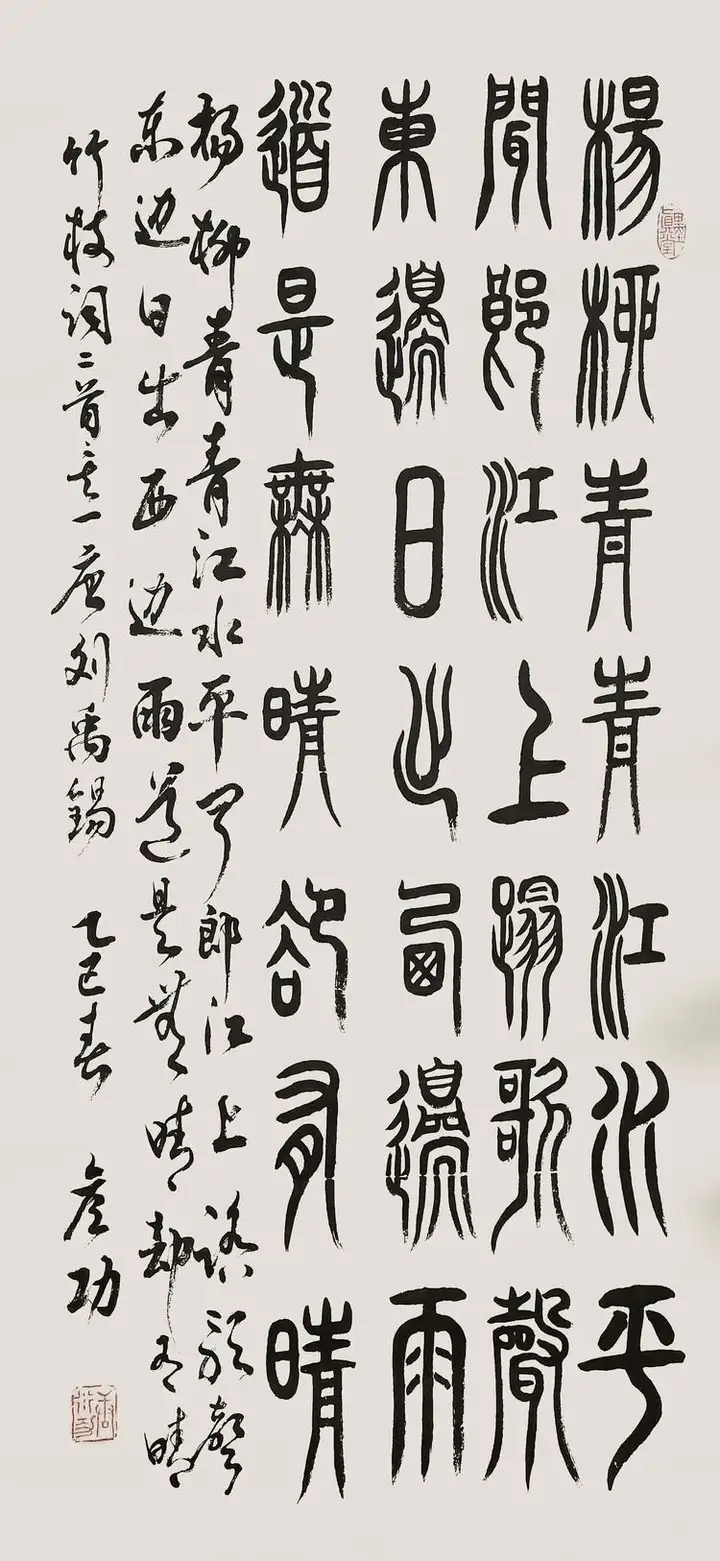 楊柳青青江水平
聞郎江上蹋歌聲
東邊日出西邊雨
道是無晴卻有晴
杨柳青青江水平闻郎江上踏歌聲
东边日出西边雨道是無晴却有晴
竹枝词二首其一 唐刘禹錫 乙巳春 功